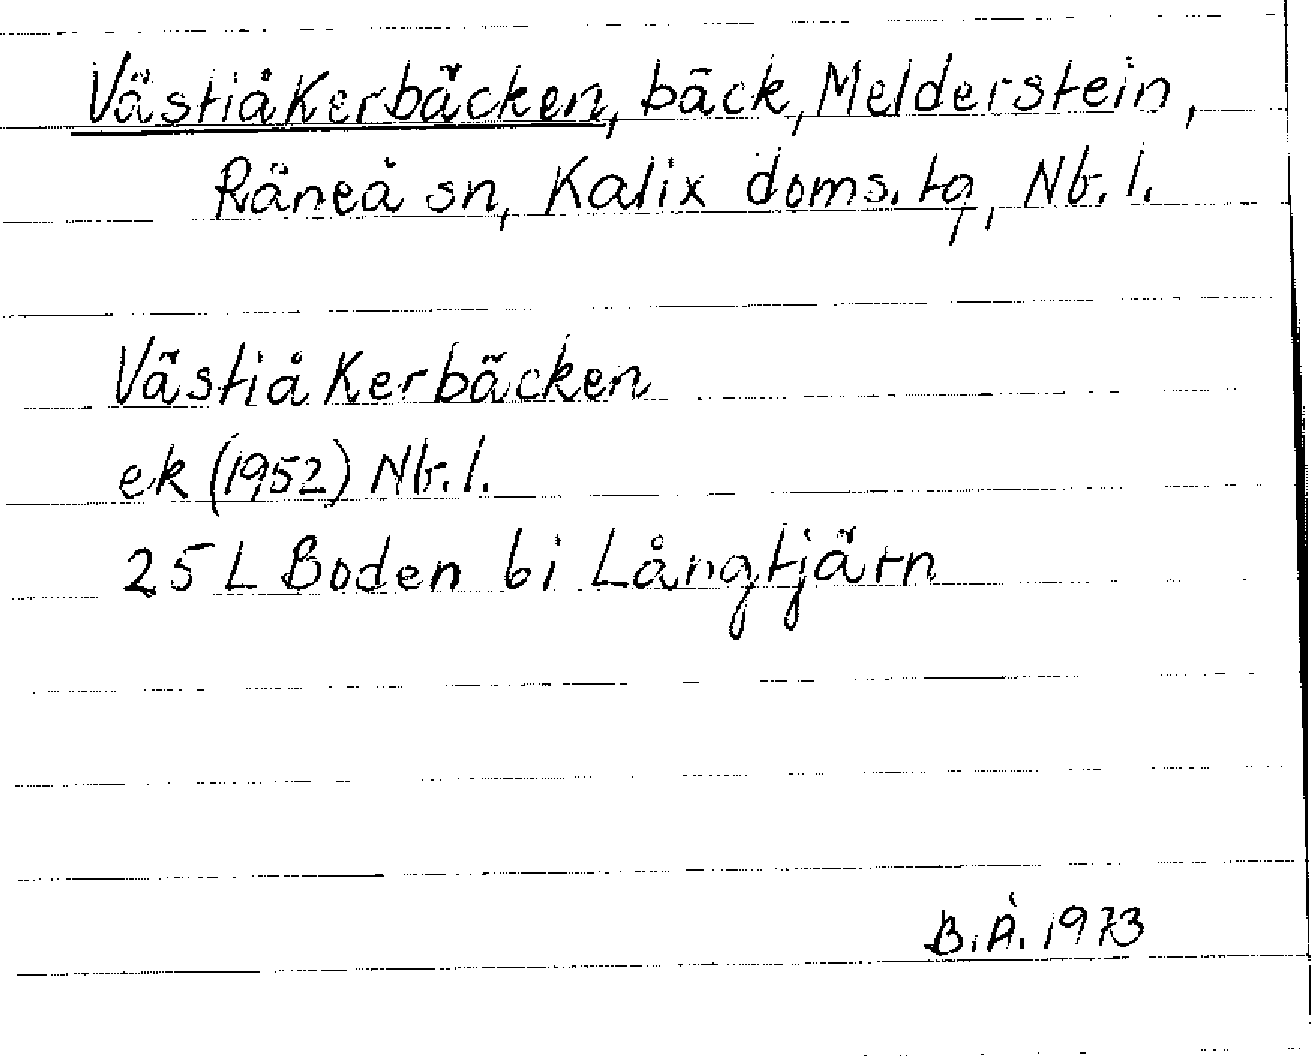 Västiåkerbäcken, bäck, Melderstein,
Råneå sn, Kalix doms. tg, Nb. l.
Västiåkerbäcken
ek (1952) Nb. l.
25 L Boden bi Långtjärn
B. Å. 1973